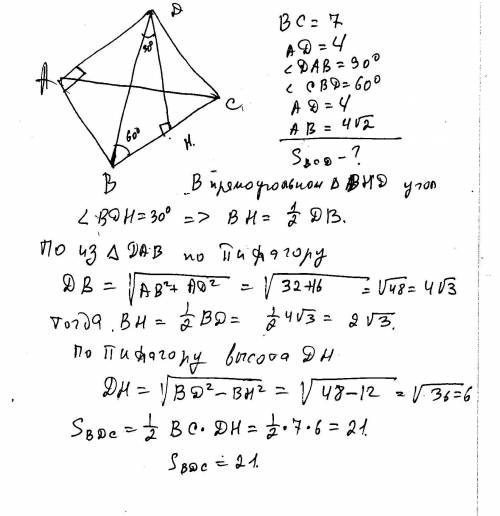 D
30
A
C
60°
H.
B
BC = 7
AD = 4
∠DAB = 90°
∠ CBD = 60°
AD = 4
AB = 4√2
S BCD - ?
В прямоугольном Δ BHD угол
∠BDH = 30° => BH = 1/2 DB.
По из Δ DAB по Пифагору
DB = √AB² + AD² = √32+16 = √48 = 4√3
Тогда BH = 1/2 BD = 1/2 4√3 = 2√3.
По Пифагору высота DH
DH = √BD² - BH² = √48-12 = √36 = 6
S BDC = 1/2 BC · DH = 1/2 · 7 · 6 = 21.
S BDC = 21.